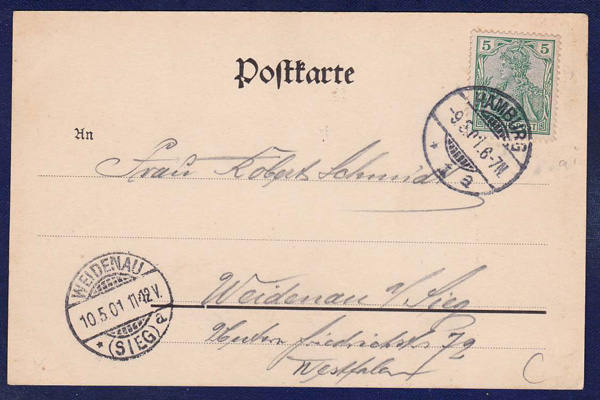 Postkarte
5 5
HAMBURG
-9.5.01.6-7N.
* 1 a
An
Frau Robert Schmidt
WEIDENAU
10.5.01 11-12V.
* (SIEG) a
Weidenau a/Sieg
72
Westfalen